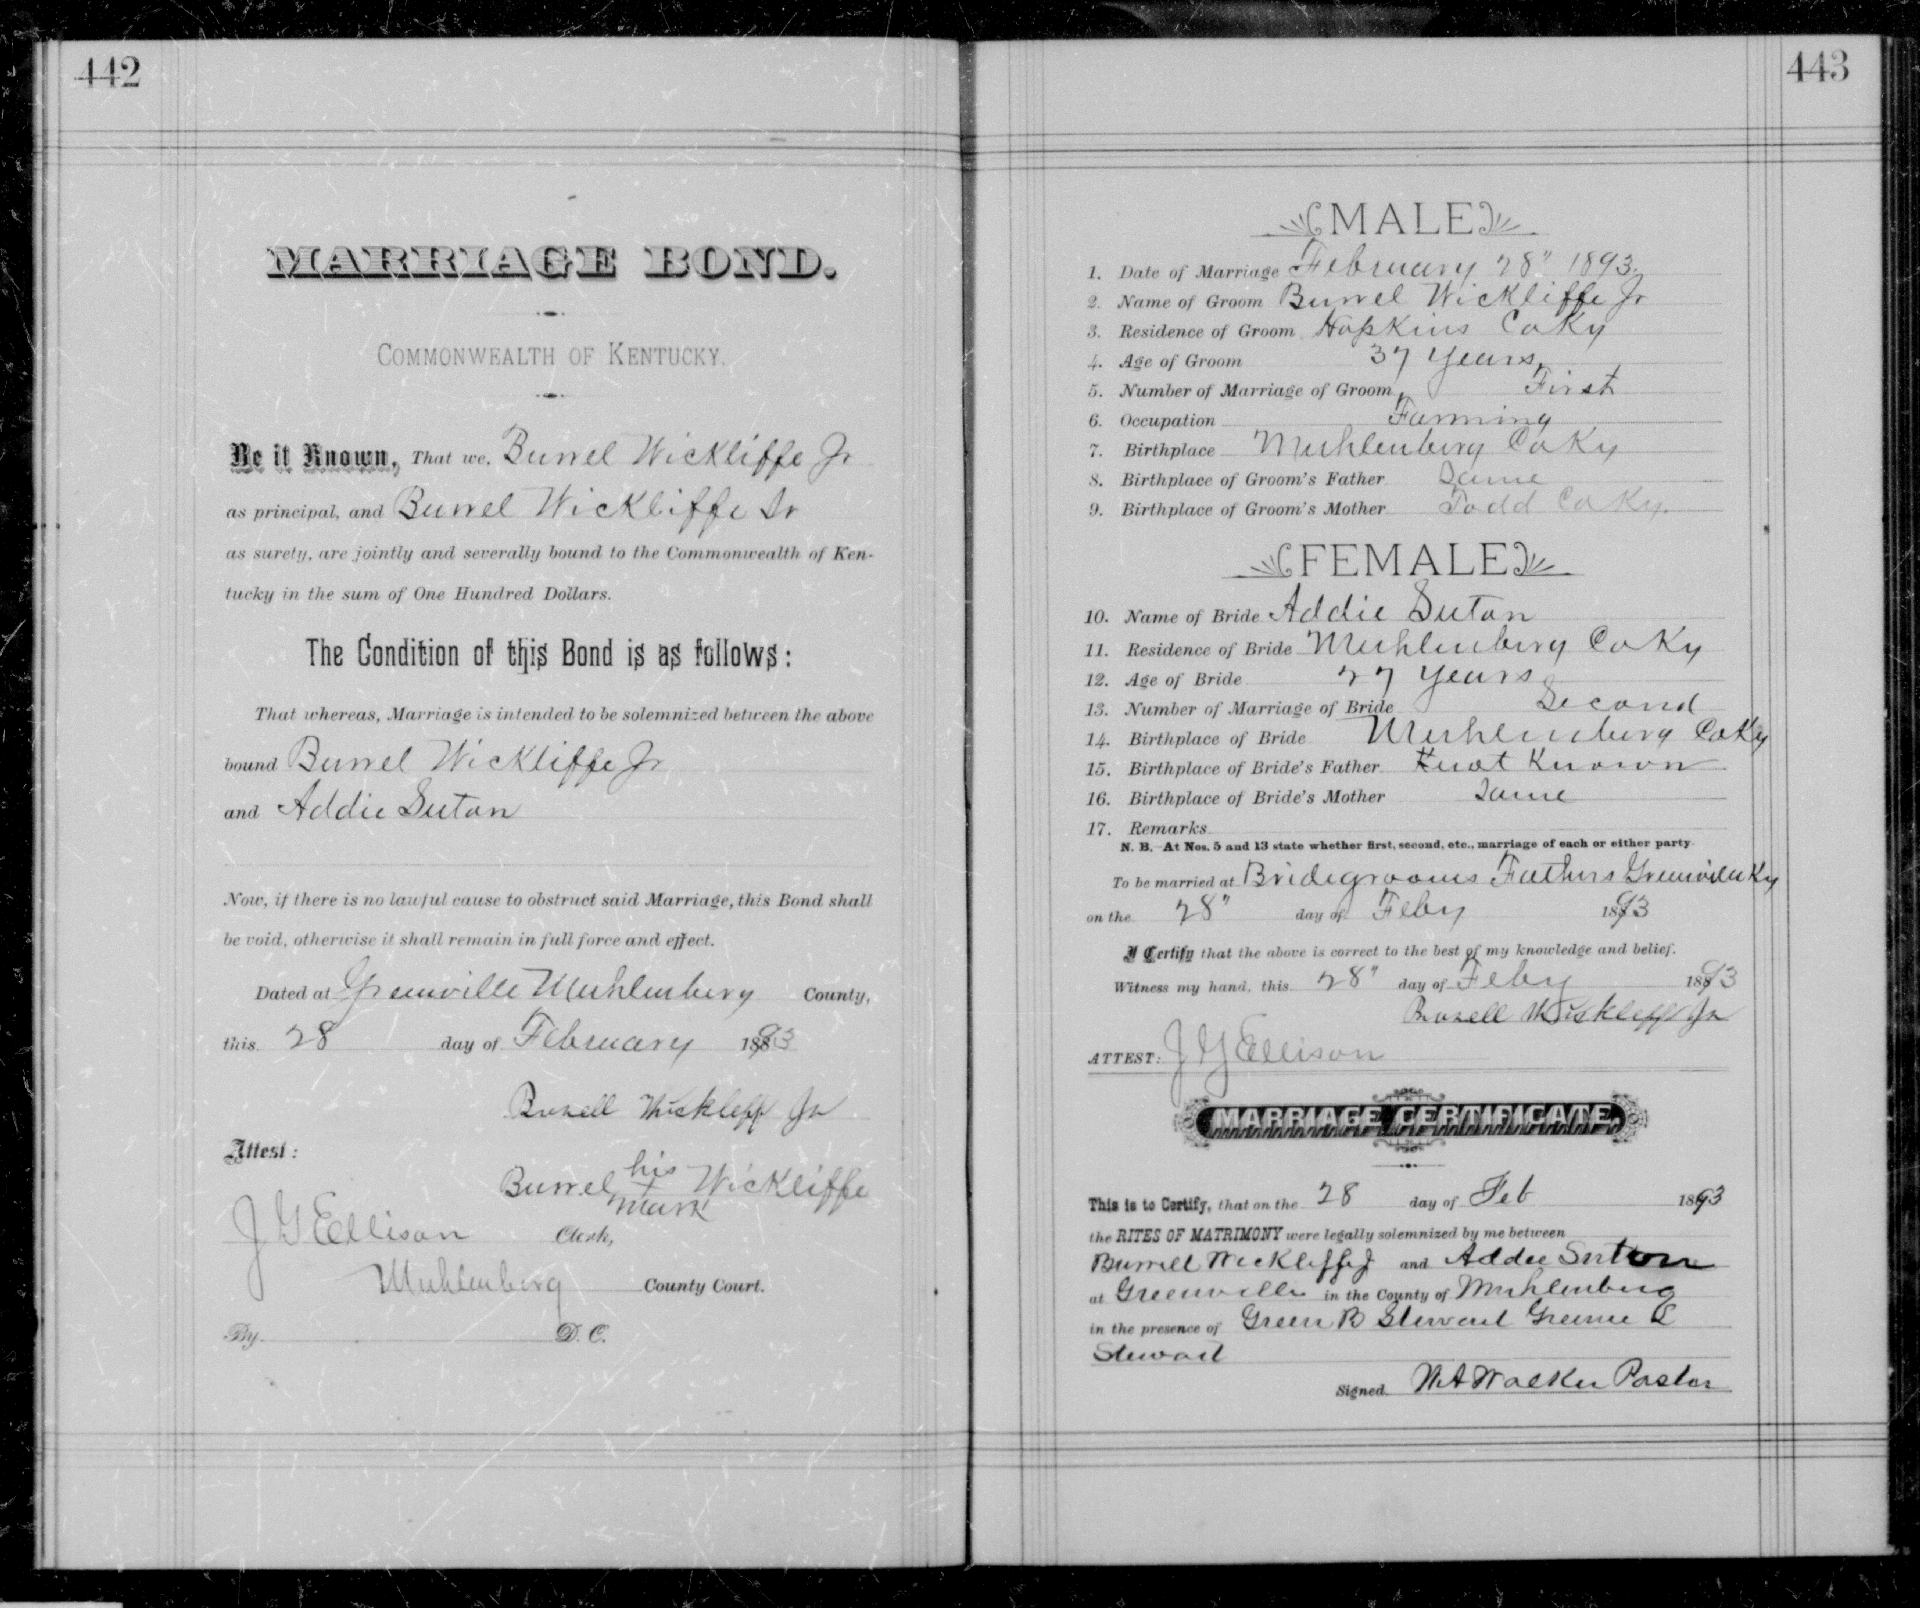 442
MARRIAGE BOND.
COMMONWEALTH OF KENTUCKY.
Be it Known, That we, Burrel Wickliffe Jr
as principal, and Burrel Wickliffe Sr
as surety, are jointly and severally bound to the Commonwealth of Ken-
tucky in the sum of One Hundred Dollars.
The Condition of this Bond is as follows:
That whereas, Marriage is intended to be solemnized between the above
bound Burrel Wickliffe Jr
and Addie Suton
Now, if there is no lawful cause to obstruct said Marriage, this Bond shall
be void, otherwise it shall remain in full force and effect.
Dated at Greenville Muhlenberg County,
this 28 day of February 1893
Burell Wickleff Jr
Attest:
his
Burrel + Wickliffe
mark
J G Ellison Clerk,
Muhlenberg County Court.
By D. C.
443
MALE
1. Date of Marriage February 28" 1893.
2. Name of Groom Burrel Wickliffe Jr
3. Residence of Groom Hopkins Co Ky
4. Age of Groom 37 Years
5. Number of Marriage of Groom First
6. Occupation Farming
7. Birthplace Muhlenberg Co Ky
8. Birthplace of Groom's Father Same
9. Birthplace of Groom's Mother Todd Co Ky.
FEMALE
10. Name of Bride Addie Suton
11. Residence of Bride Muhlenberg Co Ky
12. Age of Bride 27 Years
13. Number of Marriage of Bride Second
14. Birthplace of Bride Muhlenberg Co Ky
15. Birthplace of Bride's Father Knot Known
16. Birthplace of Bride's Mother Same
17. Remarks
N. B. At Nos. 5 and 13 state whether first, second, etc., marriage of each or either party.
To be married at Bridegrooms Fathers Greenville Ky
on the 28" day of Feby 1893
I Certify that the above is correct to the best of my knowledge and belief.
Witness my hand, this 28" day of Feby 1893
Burell Wickleff Jr
ATTEST: J G Ellison
MARRIAGE CERTIFICATE.
This is to Certify, that on the 28 day of Feb 1893
the RITES OF MATRIMONY were legally solemnized by me between
Burrell Wickliffe J and Addie Sutton
at Greenville in the County of Muhlenberg
in the presence of Green B Stewart E
Stewart
Signed W A Walker Pastor